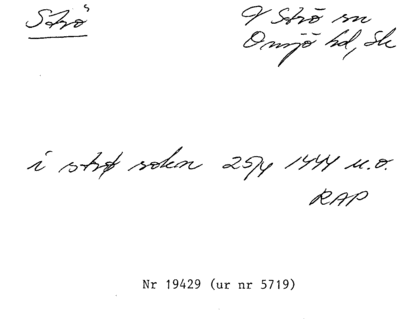 Strö
V Strö sn
Onsjö hd, Sk
i strø sokn 25/4 1444 u.o.
RAP
Nr 19429 (ur nr 5719)